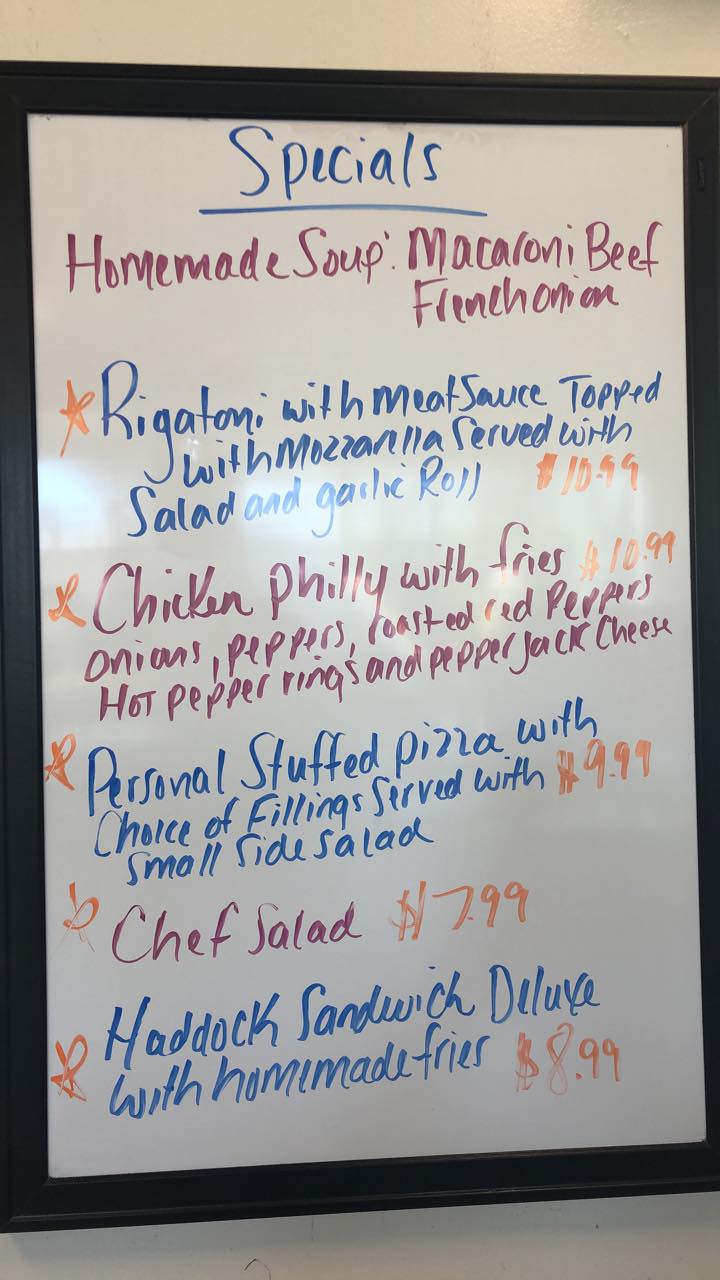 Specials
Homemade Soup: Macaroni Beef
French onion
Rigatoni with meat Sauce Topped
with Mozzarella Served with
Salad and garlic Roll $10.99
Chicken philly with fries $10.99
onions, peppers, roasted red Peppers
Hot pepper rings and pepper Jack Cheese
Personal Stuffed pizza with
Choice of Fillings Served with $9.99
Small Side Salad
Chef Salad $7.99
Haddock Sandwich Deluxe
with homemade fries $8.99